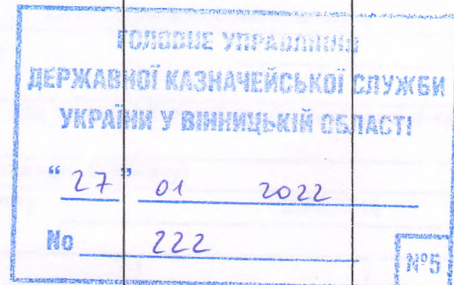 ГОЛОВНЕ УПРАВЛІННЯ
ДЕРЖАВНОЇ КАЗНАЧЕЙСЬКОЇ СЛУЖБИ
УКРАЇНИ У ВІННИЦЬКІЙ ОБЛАСТІ
“ 27 ” 01 2022
No 222
№5